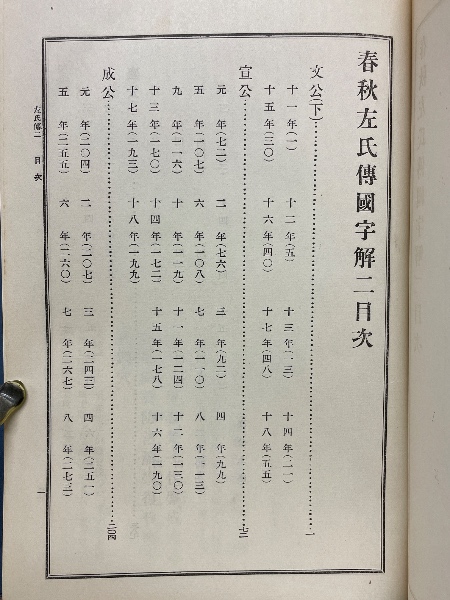 春秋左氏傳國字解二目次
文公(下)…………一
十一年(一) 十二年(五) 十三年(一三) 十四年(二一)
十五年(三〇) 十六年(四〇) 十七年(四八) 十八年(五五)
宣公…………七二
元年(七二) 二年(七六) 三年(九二) 四年(九九)
五年(一〇七) 六年(一〇八) 七年(一一〇) 八年(一一三)
九年(一一六) 十年(一一九) 十一年(一二四) 十二年(一三〇)
十三年(一七〇) 十四年(一七二) 十五年(一七八) 十六年(一九〇)
十七年(一九三) 十八年(一九九)
成公…………二〇四
元年(二〇四) 二年(二〇七) 三年(二四三) 四年(二五一)
五年(二五五) 六年(二六〇) 七年(二六七) 八年(二七三)
左氏傳二 目次
一